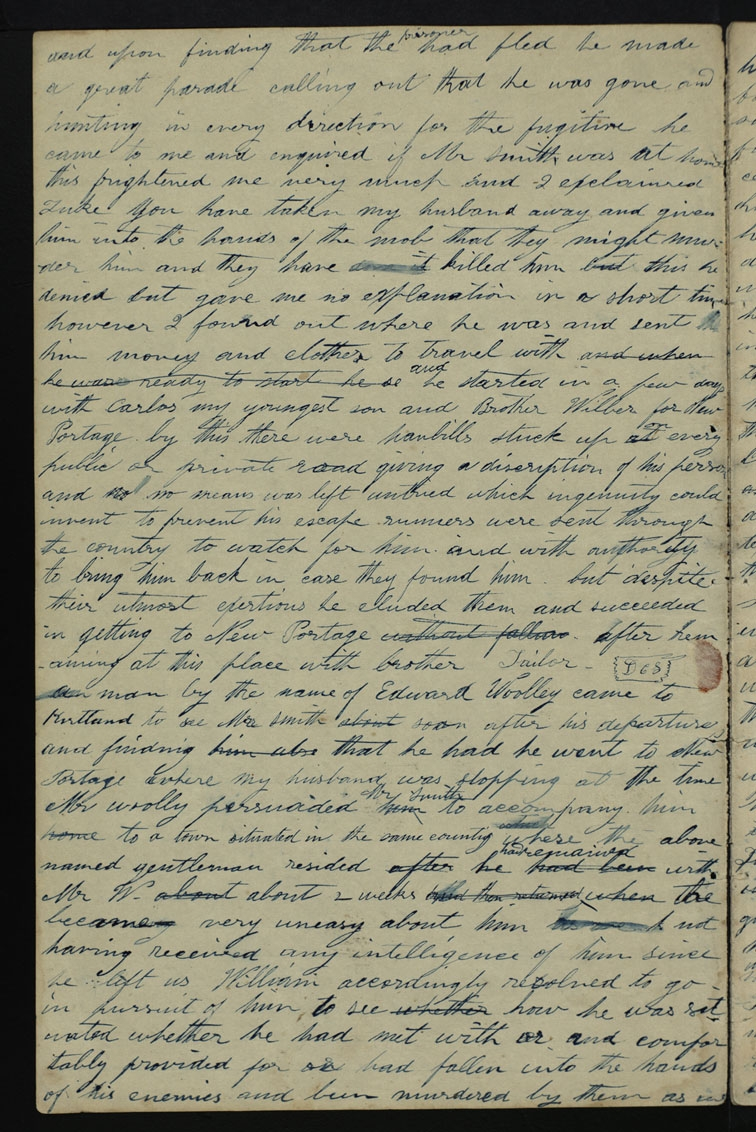 and upon finding that the prisoner had fled he made
a great parade calling out that he was gone and
hunting in every direction for the fugitive he
came to me and enquired if Mr Smith was at home
this frightened me very much and I exclaimed
Luke you have taken my husband away and given
him into the hands of the mob that they might mur
-der him and they have killed him but this he
denied but gave me no explanation in a short time
however I found out where he was and sent
him money and clothes to travel with and when
he was ready to start he se and he started in a few days
with Carlos my youngest son and Brother Wilber for New
Portage by this there were hanbills stuck up at every
public or private road giving a discription of his person
and no means was left untried which ingenuity could
invent to prevent his escape runners were sent through
the country to watch for him and with authority
to bring him back in case they found him but despite
their utmost exertions he eluded them and succeeded
in getting to New Portage without follow. After rem
-aining at this place with brother Tailor -
an man by the name of Edward Woolley came to
Kirtland to see Mr Smith about soon after his departure
and finding him abs that he had he went to New
Portage where my husband was stopping at the time
Mr woolly persuaded him Mr Smith to accompany him
home to a town situated in the same country where the above
named gentleman resided after he had been had remained with
Mr W- about about 2 weeks and then returned when the
became very uneasy about him not
having received any intelligence of him since
he left us William accordingly resolved to go -
in pursuit of him to see whether how he was sit
uated whether he had met with or and comfor
tably provided for or had fallen into the hands
of his enemies and been murdered by them as we